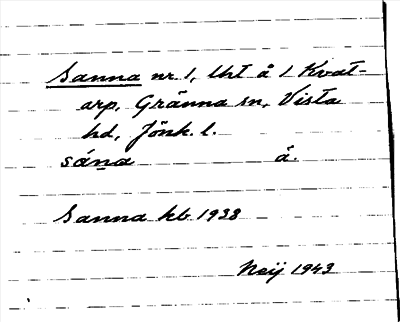 Sanna nr. 1, lht å 1 Kvat-
arp, Gränna sn, Vista
hd, Jönk. l.
sána å.
Sanna kb. 1938
Neij 1943